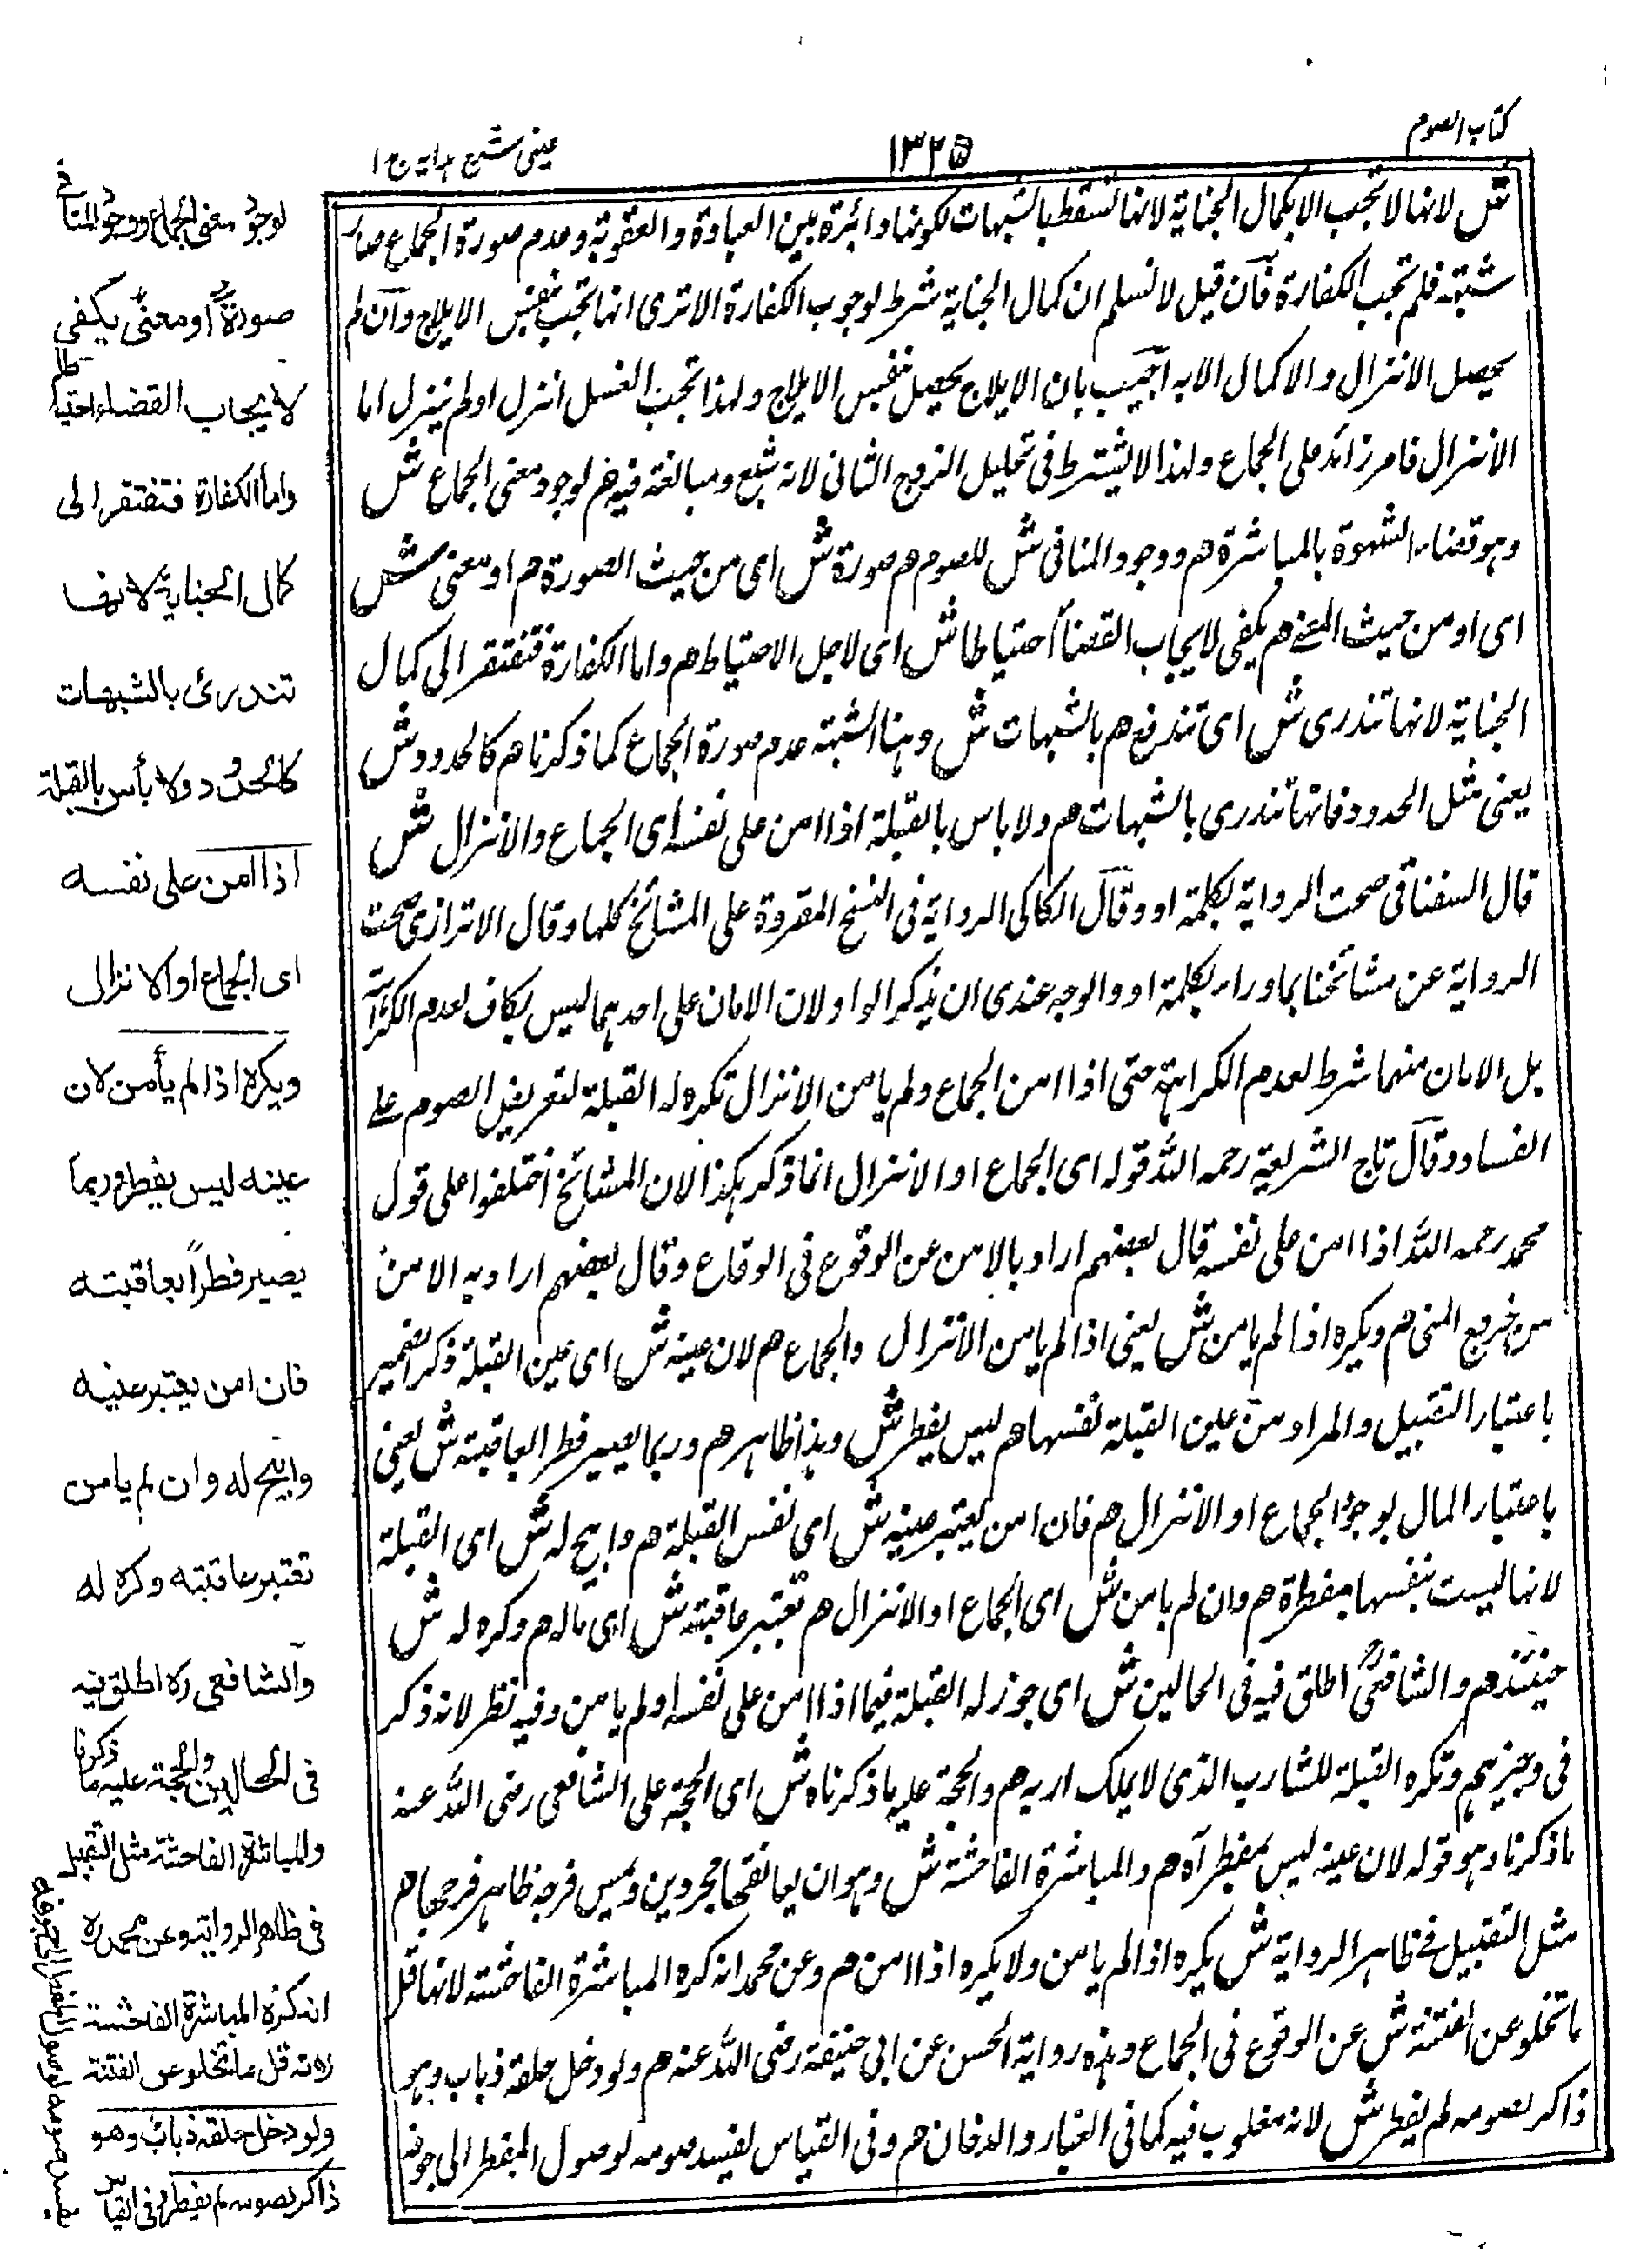 كتاب الصوم
١٣٢٥
عينى شرح هدايه ج ١
ش لانها لا تجب الا بكمال الجناية لانها تسقط بالشبهات لكونها دائرة بين العبادة والعقوبة وعدم صورة الجماع صار
شبهة فلم تجب الكفارة فان قيل لا نسلم ان كمال الجناية شرط لوجوب الكفارة الا ترى انها تجب بنفس الايلاج وان لم
يحصل الانزال والاكمال الا به اجيب بان الايلاج يحصل بنفس الايلاج ولهذا تجب الغسل انزل او لم ينزل اما
الانزال فامر زائد على الجماع ولهذا لا يشترط فى تحليل الزوج الثانى لانه شبع ومبالغة فيه م لوجود معنى الجماع ش
وهو قضاء الشهوة بالمباشرة هم ووجود المنافى ش للصوم هم صورة ش اى من حيث الصورة هم او معنى ش
اى او من حيث المعنى هم يكفى لايجاب القضاء احتياطا ش اى لاجل الاحتياط هم واما الكفارة فتفتقر الى كمال
الجناية لانها تندرى ش اى تندفع هم بالشبهات ش وهنا الشبهة عدم صورة الجماع كما ذكرنا هم كالحدود ش
يعنى مثل الحدود فانها تندرى بالشبهات هم ولا باس بالقبلة اذا امن على نفسه اى الجماع والانزال ش
قال السغناقى صحت الرواية بكلمة او وقال الكاكى الرواية فى النسخ المقروة على المشائخ كلها وقال الاترازى صحت
الرواية عن مشائخنا بما وراء بكلمة او والوجه عندى ان يذكر الواو لان الامان على احدهما ليس بكاف لعدم الكراهة
بل الامان منهما شرط لعدم الكراهة حتى اذا امن الجماع ولم يامن الانزال تكره له القبلة لتعريض الصوم على
الفساد وقال تاج الشريعة رحمه الله قوله اى الجماع او الانزال انما ذكر هكذا لان المشائخ اختلفوا على قول
محمد رحمه الله اذا امن على نفسه قال بعضهم اراد بالامن عن الوقوع فى الوقاع وقال بعضهم اراد به الامن
من خروج المنى هم ويكره اذا لم يامن ش يعنى اذا لم يامن الانزال والجماع هم لان عينه ش اى عين القبلة ذكر الضمير
باعتبار التقبيل والمراد من عين القبلة نفسها هم ليس بفطر ش وهذا ظاهر هم وربما يصير فطرا لعاقبته ش يعنى
باعتبار المال بوجود الجماع او الانزال هم فان امن يعتبر عينه ش اى نفس القبلة هم وابيح له ش اى القبلة
لانها ليست بنفسها مفطرة هم وان لم يامن ش اى الجماع او الانزال هم تعتبر عاقبته ش اى ماله هم وكره له ش
حينئذ هم والشافعى اطلق فيه فى الحالين ش اى جوز له القبلة فيما اذا امن على نفسه او لم يامن وفيه نظر لانه ذكر
فى وجيزهم وتكره القبلة للشارب الذى لا يملك اربه هم والحجة عليه ما ذكرناه ش اى الحجة على الشافعى رضى الله عنه
ما ذكرنا وهو قوله لان عينه ليس بمفطر آه هم والمباشرة الفاحشة ش وهو ان يعانقها مجردين ويمس فرجه ظاهر فرجها هم
مثل التقبيل فى ظاهر الرواية ش يكره اذا لم يامن ولا يكره اذا امن هم وعن محمد انه كره المباشرة الفاحشة لانها قل
ما تخلو عن الفتنة ش عن الوقوع فى الجماع وهذه رواية الحسن عن ابى حنيفة رضى الله عنه هم ولو دخل حلقه ذباب وهو
ذاكر لصومه لم يفطر ش لانه مغلوب فيه كما فى الغبار والدخان هم وفى القياس يفسد صومه لوصول المفطر الى جوفه
لوجود معنى الجماع ووجود المنافى
صورةً او معنىً يكفى
لايجاب القضاء احتياطا
واما الكفارة فتفتقر الى
كمال الجناية لانها
تندرئ بالشبهات
كالحدود ولا بأس بالقبلة
اذا امن على نفسه
اى الجماع او الانزال
ويكره اذا لم يأمن لان
عينه ليس بفطر وربما
يصير فطراً بعاقبته
فان امن يعتبر عينه
وابيح له وان لم يامن
تعتبر عاقبته وكره له
والشافعى ره اطلق فيه
فى الحالين والحجة عليه ما ذكرنا
والمباشرة الفاحشة مثل التقبيل
فى ظاهر الرواية وعن محمد ره
انه كره المباشرة الفاحشة
لانه قل ما تخلو عن الفتنة
ولو دخل حلقه ذباب وهو
ذاكر لصومه لم يفطر وفى القياس
يفسد صومه لوصول المفطر الى جوفه